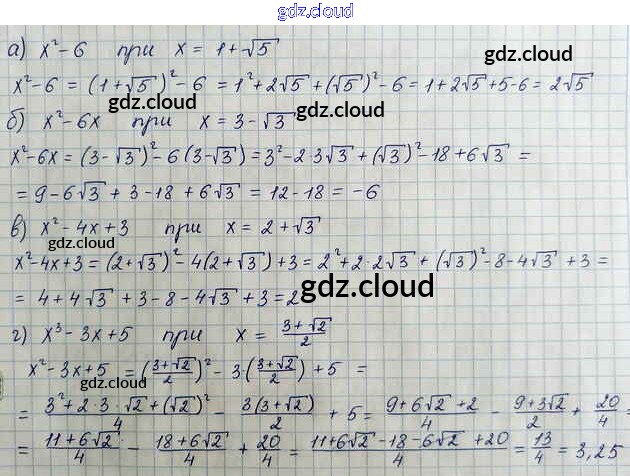 gdz.cloud
а) x² - 6 при x = 1 + √5
gdz.cloud
x² - 6 = (1 + √5)² - 6 = 1² + 2√5 + (√5)² - 6 = 1 + 2√5 + 5 - 6 = 2√5
gdz.cloud
б) x² - 6x при x = 3 - √3
gdz.cloud
x² - 6x = (3 - √3)² - 6(3 - √3) = 3² - 2 3√3 + (√3)² - 18 + 6√3 =
= 9 - 6√3 + 3 - 18 + 6√3 = 12 - 18 = -6
в) x² - 4x + 3 при x = 2 + √3
gdz.cloud
x² - 4x + 3 = (2 + √3)² - 4(2 + √3) + 3 = 2² + 2 · 2√3 + (√3)² - 8 - 4√3 + 3 =
= 4 + 4√3 + 3 - 8 - 4√3 + 3 = 2
gdz.cloud
г) x³ - 3x + 5 при x = (3 + √2)/2
x² - 3x + 5 = ((3 + √2)/2)² - 3 · ((3 + √2)/2) + 5 =
gdz.cloud
= (3² + 2 · 3 · √2 + (√2)²)/4 - 3(3 + √2)/2 + 5 = (9 + 6√2 + 2)/4 - (9 + 3√2)/2 + 20/4 =
= (11 + 6√2)/4 - (18 + 6√2)/4 + 20/4 = (11 + 6√2 - 18 - 6√2 + 20)/4 = 13/4 = 3,25